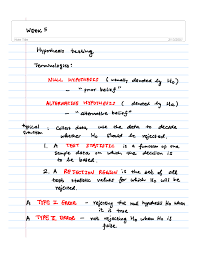 WEEK 5
Hypothesis testing
Terminologies:
NULL HYPOTHESIS (usually denoted by H0)
- "prior belief"
ALTERNATIVE HYPOTHESIS ( denoted by Ha)
- "alternative belief"
typical : Collect data, use the data to decide
whether H0 should be rejected.
1. A TEST STATISTIC is a function of the
sample data on which the decision is
to be based.
2. A REJECTION REGION is the set of all
test statistic values for which H0 will be
rejected.
A TYPE I ERROR - rejecting the null hypothesis H0 when
it is true
A TYPE II ERROR - not rejecting H0 when H0 is
false.